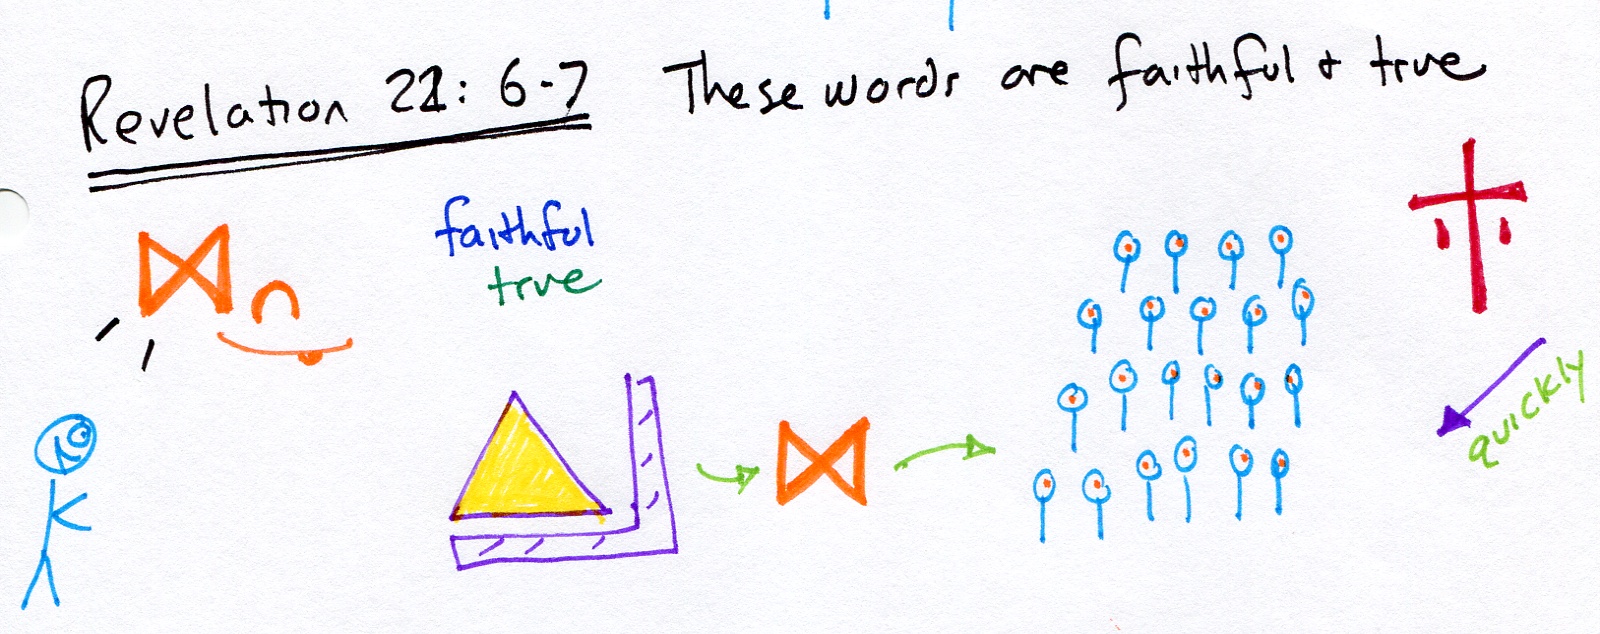 Revelation 22: 6-7 These words are faithful + true
faithful
true
quickly